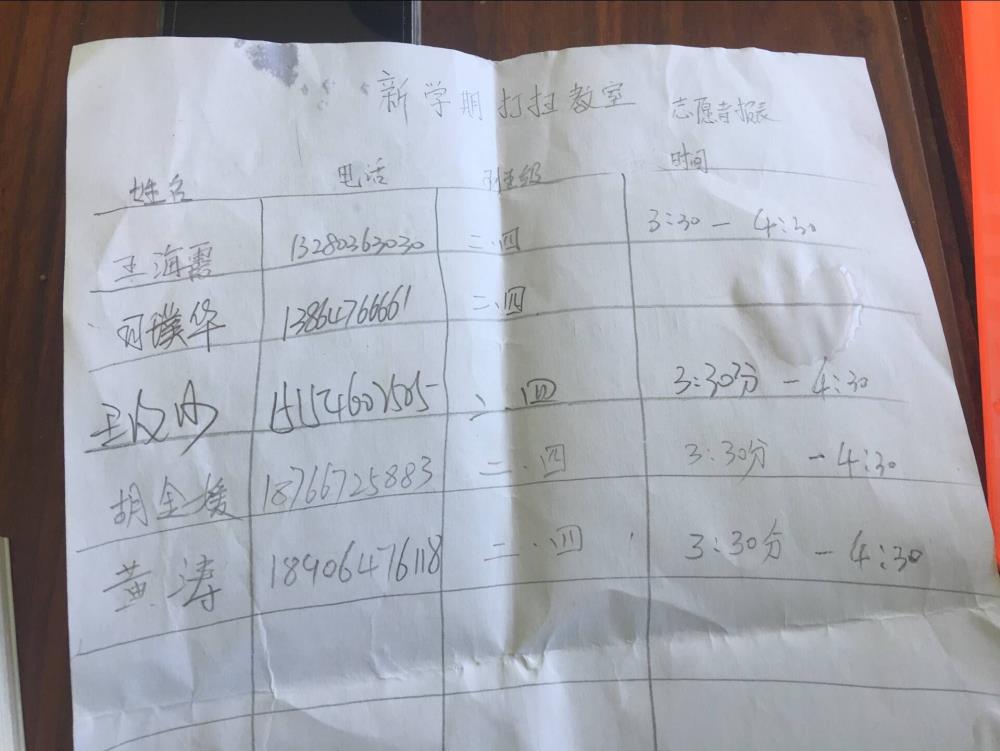 新学期打扫教室 志愿者报表
姓名 电话 班级 时间
王海霞 13280363030 二.四 3:30 — 4:30
璞华 13864766661 二.四
王 二.四 3:30分 — 4:30
胡金媛 18766725883 二.四 3:30分 — 4:30
黄涛 18906476118 二.四 3:30分 — 4:30